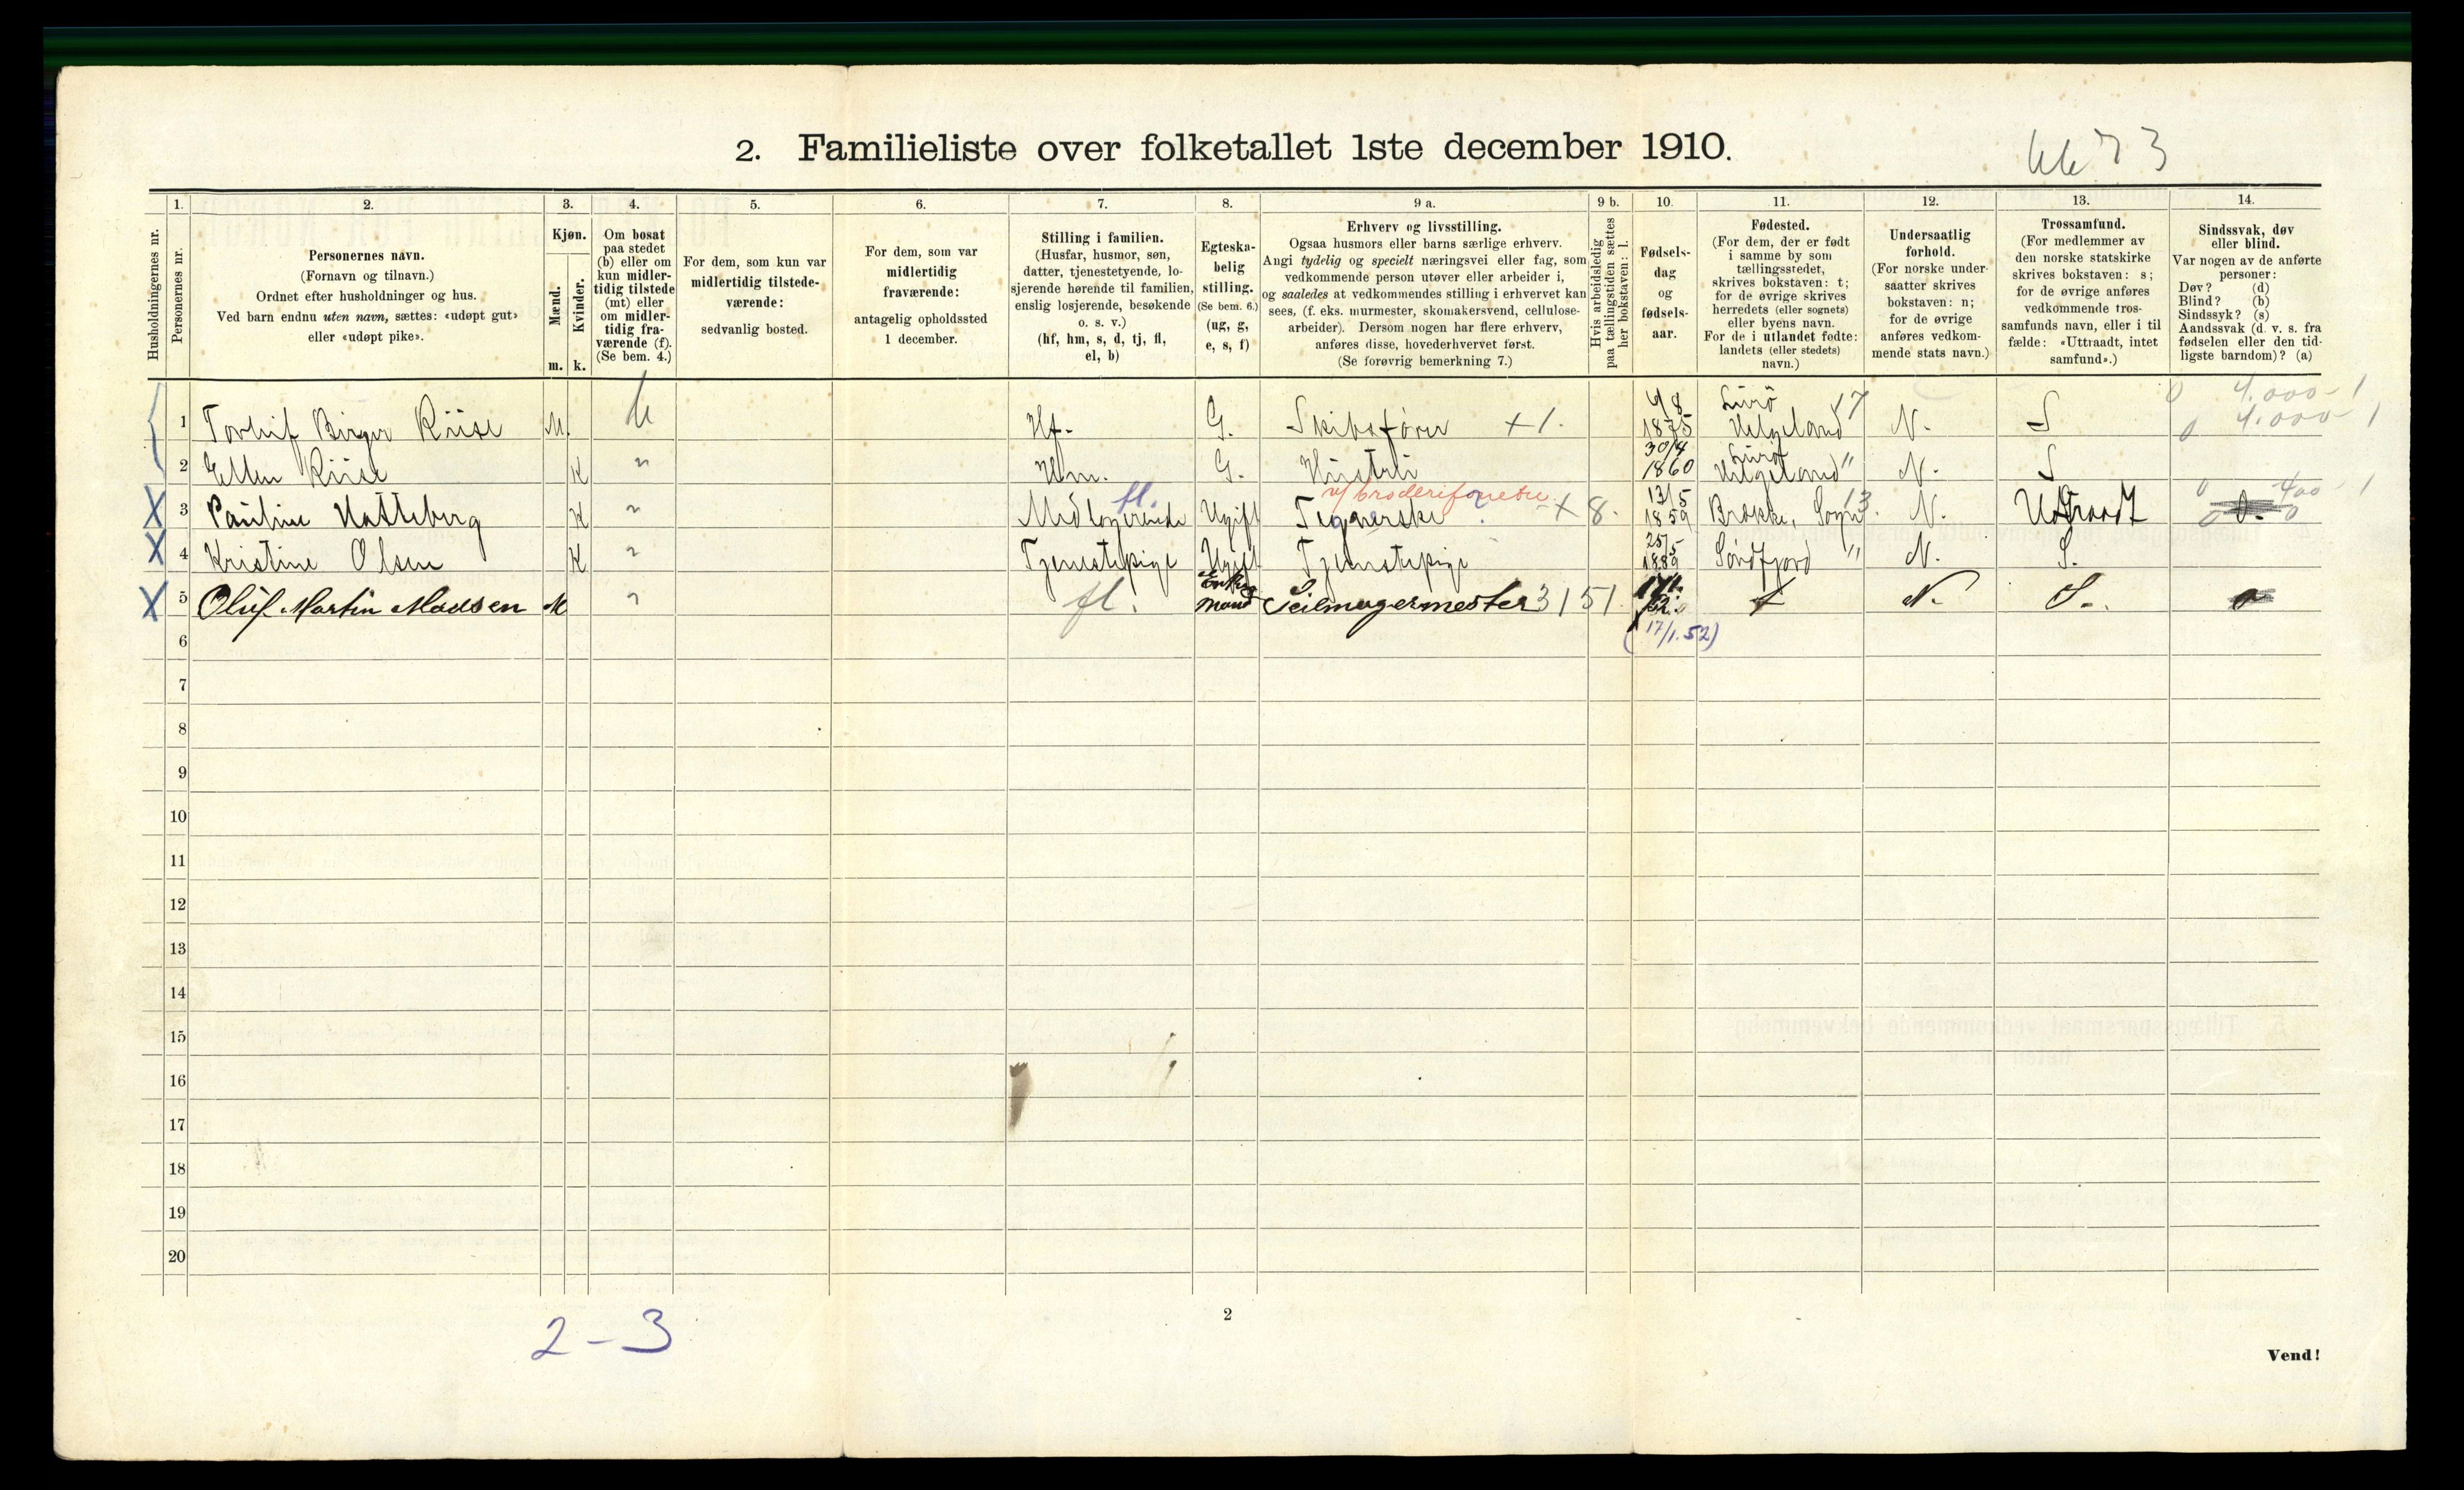 2. Familieliste over folketallet 1ste december 1910.
1. 2. 3. 4. 5. 6. 7. 8. 9 a. 9 b. 10. 11. 12. 13. 14.
Husholdningernes nr.
Personernes nr.
Personernes navn.
(Fornavn og tilnavn.)
Ordnet efter husholdninger og hus.
Ved barn endnu uten navn, sættes: «udøpt gut»
eller «udøpt pike».
Kjøn.
Mænd.
Kvinder.
m. k.
Om bosat
paa stedet
(b) eller om
kun midler-
tidig tilstede
(mt) eller
om midler-
tidig fra-
værende (f).
(Se bem. 4.)
For dem, som kun var
midlertidig tilstede-
værende:
sedvanlig bosted.
For dem, som var
midlertidig
fraværende:
antagelig opholdssted
1 december.
Stilling i familien.
(Husfar, husmor, søn,
datter, tjenestetyende, lo-
sjerende hørende til familien,
enslig losjerende, besøkende
o. s. v.)
(hf, hm, s, d, tj, fl,
el, b)
Egteska-
belig
stilling.
(Se bem. 6.)
(ug, g,
e, s, f)
Erhverv og livsstilling.
Ogsaa husmors eller barns særlige erhverv.
Angi tydelig og specielt næringsvei eller fag, som
vedkommende person utøver eller arbeider i,
og saaledes at vedkommendes stilling i erhvervet kan
sees, (f. eks. murmester, skomakersvend, cellulose-
arbeider). Dersom nogen har flere erhverv,
anføres disse, hovederhvervet først.
(Se forøvrig bemerkning 7.)
Hvis arbeidsledig
paa tællingstiden sættes
her bokstaven: l.
Fødsels-
dag
og
fødsels-
aar.
Fødested.
(For dem, der er født
i samme by som
tællingsstedet,
skrives bokstaven: t;
for de øvrige skrives
herredets (eller sognets)
eller byens navn.
For de i utlandet fødte:
landets (eller stedets)
navn.)
Undersaatlig
forhold.
(For norske under-
saatter skrives
bokstaven: n;
for de øvrige
anføres vedkom-
mende stats navn.)
Trossamfund.
(For medlemmer av
den norske statskirke
skrives bokstaven: s;
for de øvrige anføres
vedkommende tros-
samfunds navn, eller i til
fælde: «Uttraadt, intet
samfund».)
Sindssvak, døv
eller blind.
Var nogen av de anførte
personer:
Døv? (d)
Blind? (b)
Sindssyk? (s)
Aandssvak (d. v. s. fra
fødselen eller den tid-
ligste barndom)? (a)
0 4.000 - 1
1 Torleif Birger Riise M. Hf. G. Skibsfører + 1. 6/8 1875 Lurö Helgeland 17 N. S 0 4.000 - 1
2 Ellen Riise K " Hm. G. Hustru 30/4 1860 Lurö Helgeland " N. S
3 Pauline Hatteberg K " Medlogerende fl. Ugift Tegnerske + 8. 13/5 1859 Brække, Sogn 13. N. Uttraadt 0 400 - 1
4 Kristine Olsen K " Tjenestepige Ugift Tjenestepige 25/5 1889 Søndfjord " N. S.
5 Oluf Martin Madsen M " fl. Enkemand Seilmagermester 3151 (17/1.52) t N. S.
6
7
8
9
10
11
12
13
14
15
16
17
18
19
20
2 - 3
2
Vend!